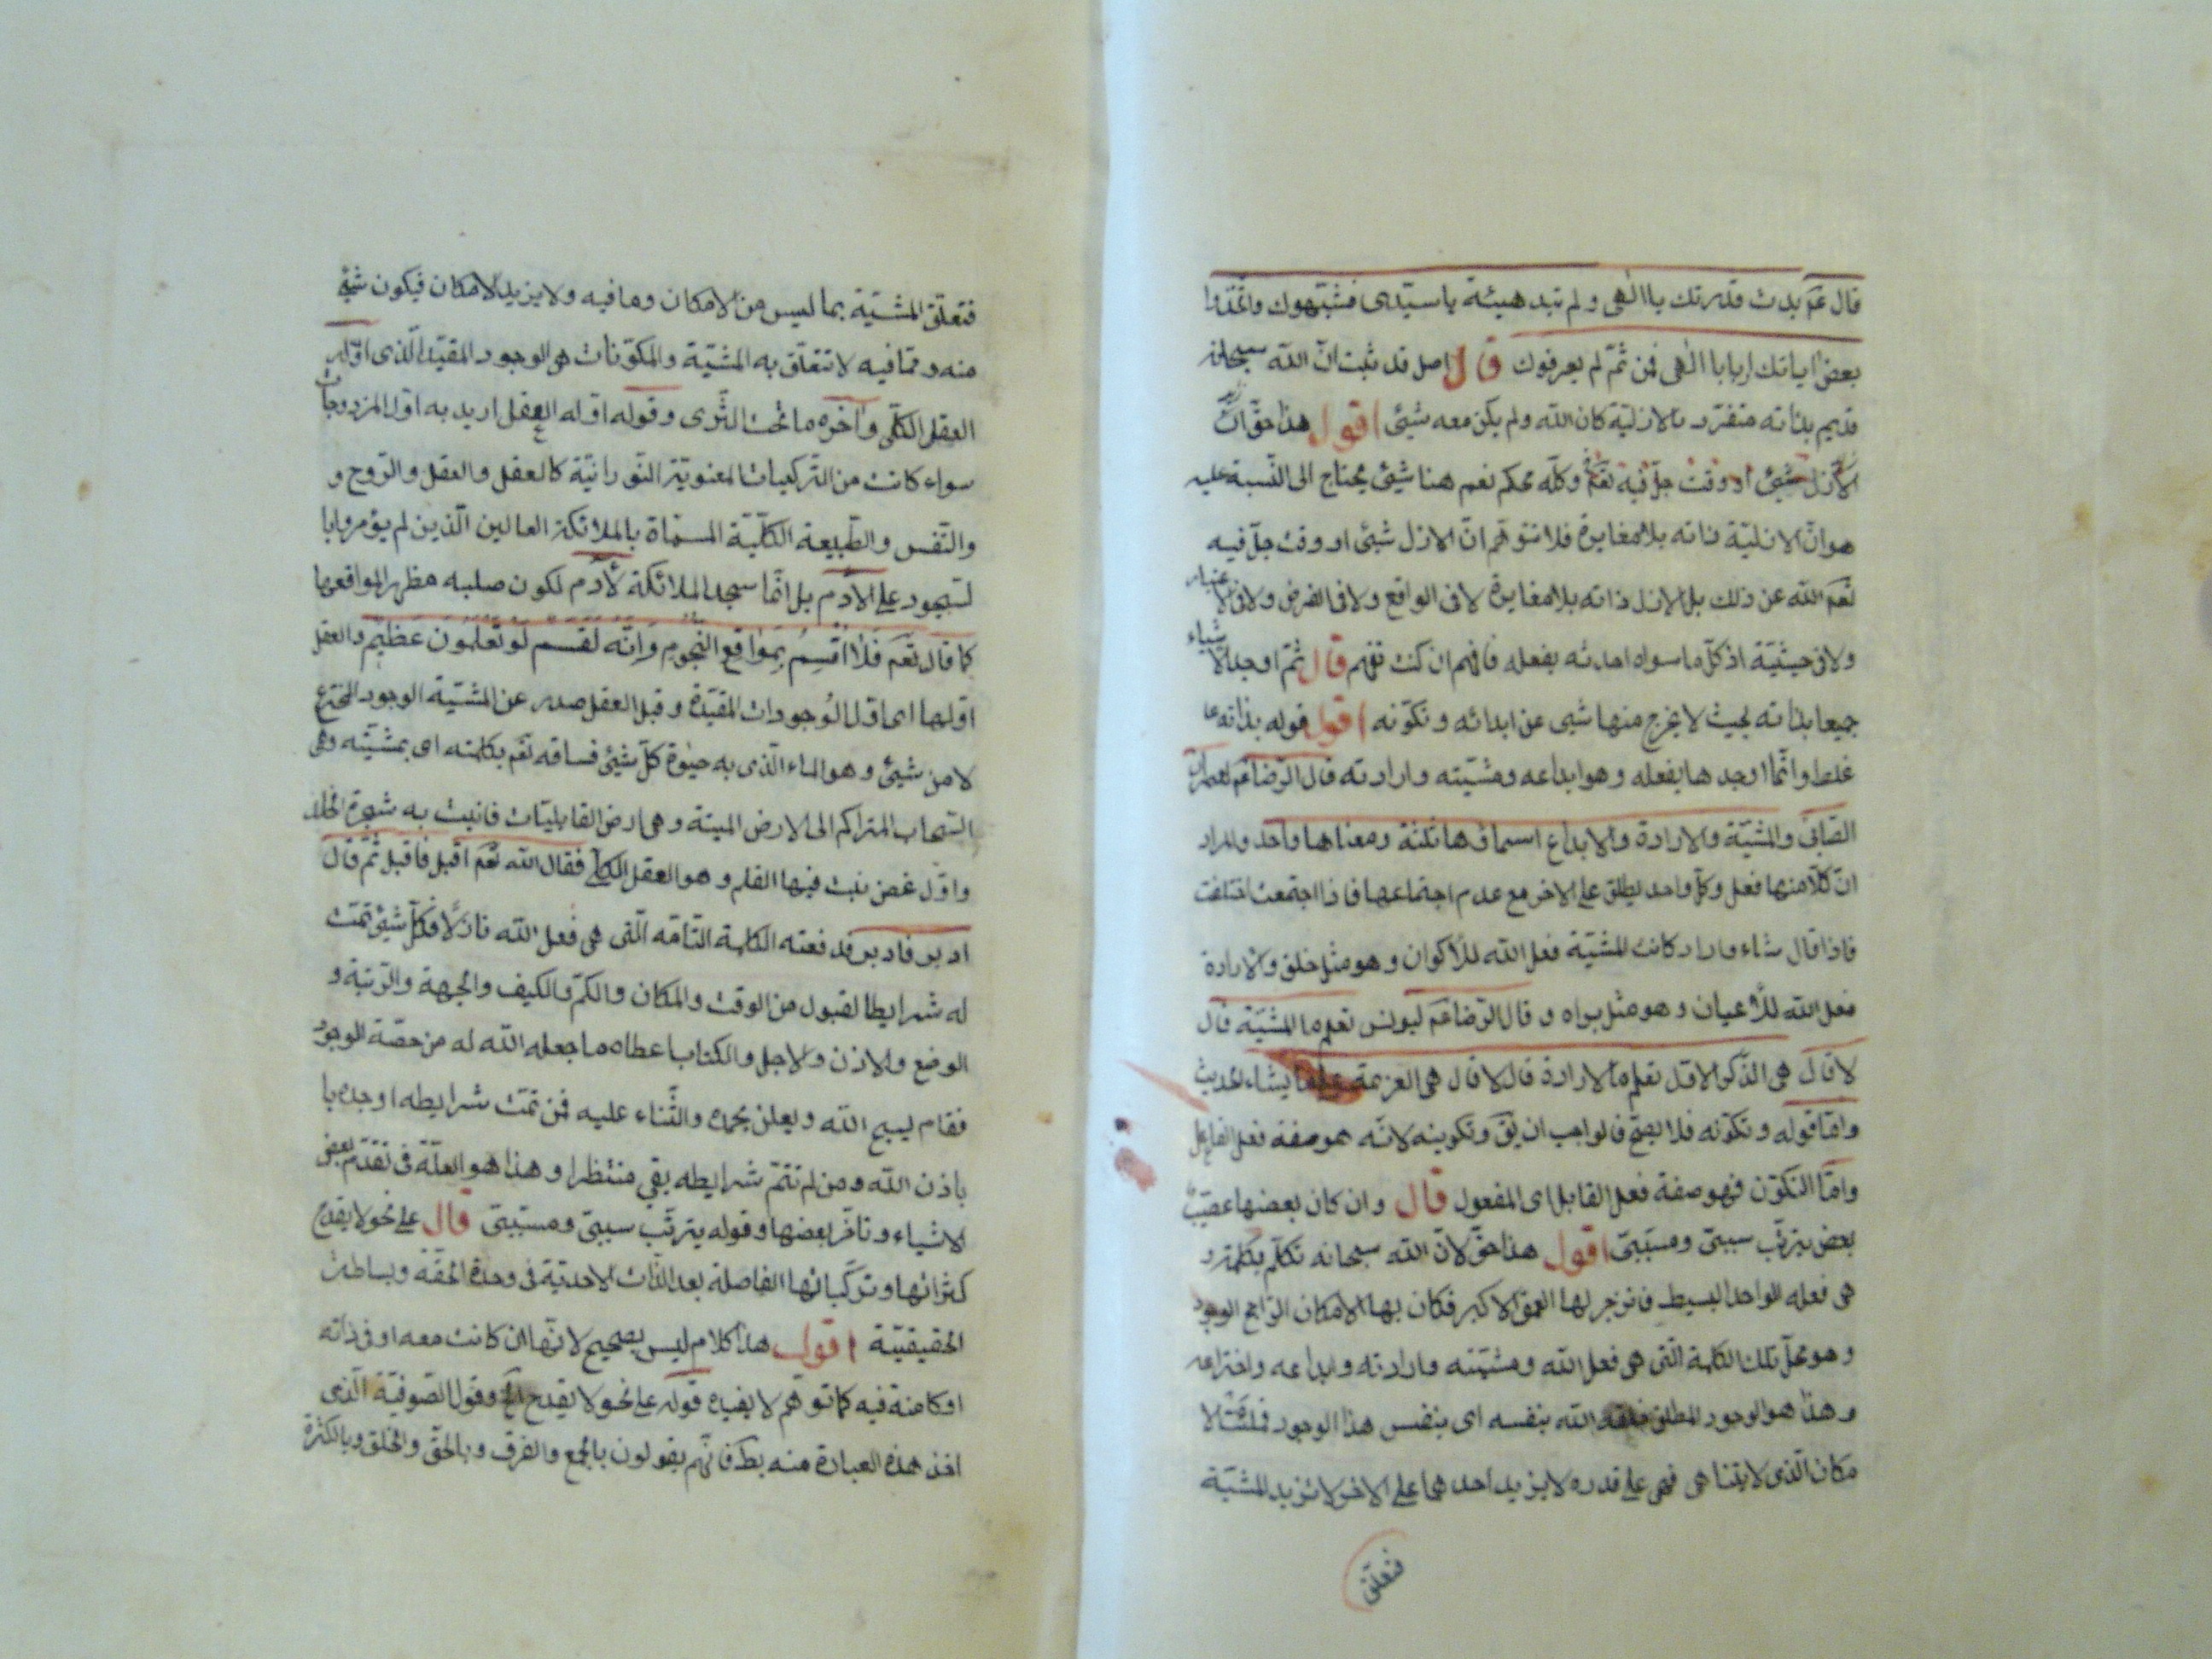 قال عم بدت قدرتك يا الهى و لم تبد هيئة يا سيدى فشبهوك واتخذوا
بعض اياتك اربابا الهى فمن ثم لم يعرفوك قال اصل قد ثبت ان الله سبحانه
قديم بذاته متفرد بالازلية كان الله ولم يكن معه شيئ اقول هذا حق
الازل شيئ او وقت حل فيه وكله محكم نعم هنا شيئ يحتاج الى التنبيه عليه
هو ان الازلية ذاته بلا مغايرة فلا تتوهم ان الازل شيئ او وقت حل فيه
تعم الله عن ذلك بل الازل ذاته بلا مغايرة لا فى الواقع ولا فى الفرض ولا فى الاعتبار
ولا فى حيثية اذ كل ما سواه احدثه بفعله فافهم ان كنت تفهم قال ثم اوجد الاشياء
جميعا بذاته بحيث لا يخرج منها شيى عن ابدائه و تكونه اقول قوله بذاته
غلط وانما اوجدها بفعله وهو ابداعه ومشيته وارادته قال الرضا عم لعمران
الصابى والمشية والارادة والابداع اسماؤها ثلثة ومعناها واحد والمراد
ان كلا منها فعل وكل واحد يطلق على الاخر مع عدم اجتماعها فاذا اجتمعت اختلفت
فاذا قال شاء واراد كانت المشية فعل الله للأكوان وهو مثل خلق والارادة
فعل الله للأعيان وهو مثل براه و قال الرضا عم ليونس تعلم ما المشية قال
لا قال هى الذكر الاول تعلم ما الارادة قال لا قال هى العزيمة على ما يشاء الحديث
واما قوله و تكونه فلا يصح فالواجب ان يق وتكوينه لانه هو صفة فعل الفاعل
واما التكون فهو صفة فعل القابل اى المفعول قال وان كان بعضها عقيب
بعض بترتب سببى ومسببى اقول هذا حق لان الله سبحانه تكلم بكلمة و
هى فعله الواحد البسيط فانزجر لها العمق الاكبر فكان بها الامكان الراجح الوجود
وهو محل تلك الكلمة التى هى فعل الله ومشيته وارادته وابداعه واختراعه
وهذا هو الوجود المطلق خلقه الله بنفسه اى بنفس هذا الوجود فملئت الا
مكان الذى لا يتناهى فهى على قدره لا يزيد احدهما على الاخر لا تزيد المشية
فتعلق
فتعلق المشية بما ليس من الامكان وما فيه ولا يزيد الامكان فيكون شيئ
منه و مما فيه لا تتعلق به المشية والمكونات هو الوجود المقيد الذى اوله
العقل الكلى وآخره ما تحت الثرى وقوله اوله العقل اريد به اول المزدوجات
سواء كانت من التركيبات المعنوية النورانية كالعقل والعقل والروح و
والنفس والطبيعة الكلية المسماة بالملائكة العالين الذين لم يؤمروا با
لسجود على الادم بل انما سجد الملائكة لأدم لكون صلبه مظهر المواقعها
كما قال تعم فلا اقسم بمواقع النجوم وانه لقسم لو تعلمون عظيم والعقل
اولها اى اول الوجودات المقيدة وقبل العقل صدر عن المشية الوجود المخترع
لا من شيئ وهو الماء الذى به حيوة كل شيئ فساقه تعم بكلمته اى بمشيته وهى
السحاب المتراكم الى الارض الميتة وهى ارض القابليات فانبت به شجرة الخلد
واول غصن نبت فيها القلم وهو العقل الكلى فقال الله تعم اقبل فاقبل ثم قال
ادبر فادبر قد فعته الكلمة التامة التى هى فعل الله نازلا فكل شيئ تمت
له شرايط القبول من الوقت والمكان والكم والكيف والجهة والرتبة و
الوضع والاذن والاجل والكتاب اعطاه ما جعله الله له من حصة الوجود
فقام يسبح الله ويعلن بحمده والثناء عليه فمن تمت شرايطه اوجده با
باذن الله ومن لم تتم شرايطه بقى منتظرا وهذا هو العلة فى تقدم بعض
الاشياء و تاخر بعضها وقوله يترتب سببى ومسببى قال على نحو لا يقدح
كثراتها وتركباتها الفاصلة بعد الذات الاحدية فى وحدة الحقة وبساطة
الحقيقية اقول هذا كلام ليس بصحيح لانها ان كانت معه او فى ذاته
او كامنة فيه كما توهم لا يفيده قوله على نحو لا يقدح وقول الصوفية الذى
اخذ هذه العبارة منه بط فانهم يقولون بالجمع والفرق وبالحق والخلق وبالكثرة